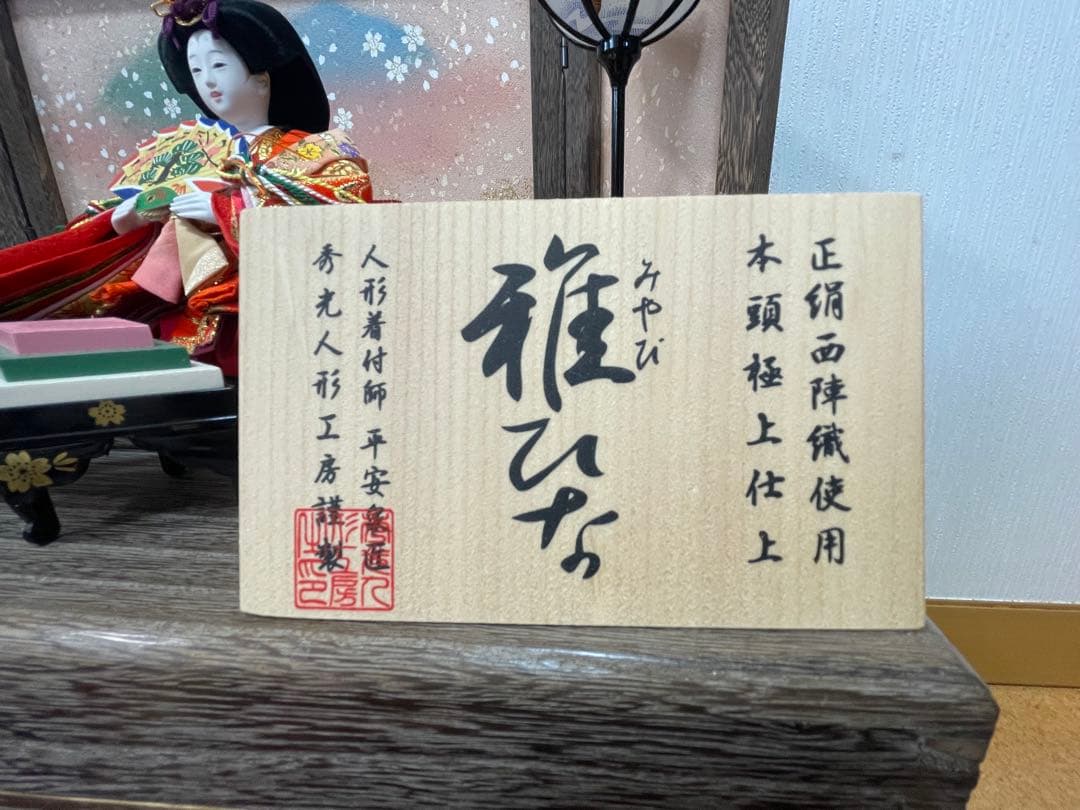 正絹西陣織使用
本頭極上仕上
みやび
雅ひな
人形着付師 平安
秀光人形工房謹製